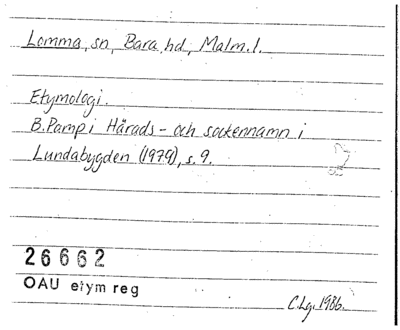 Lomma, sn, Bara hd, Malm. l.
Etymologi.
B. Pamp i Härads- och sockennamn i
Lundabygden (1979), s. 9.
26662
OAU etym reg
C.Lg. 1986.